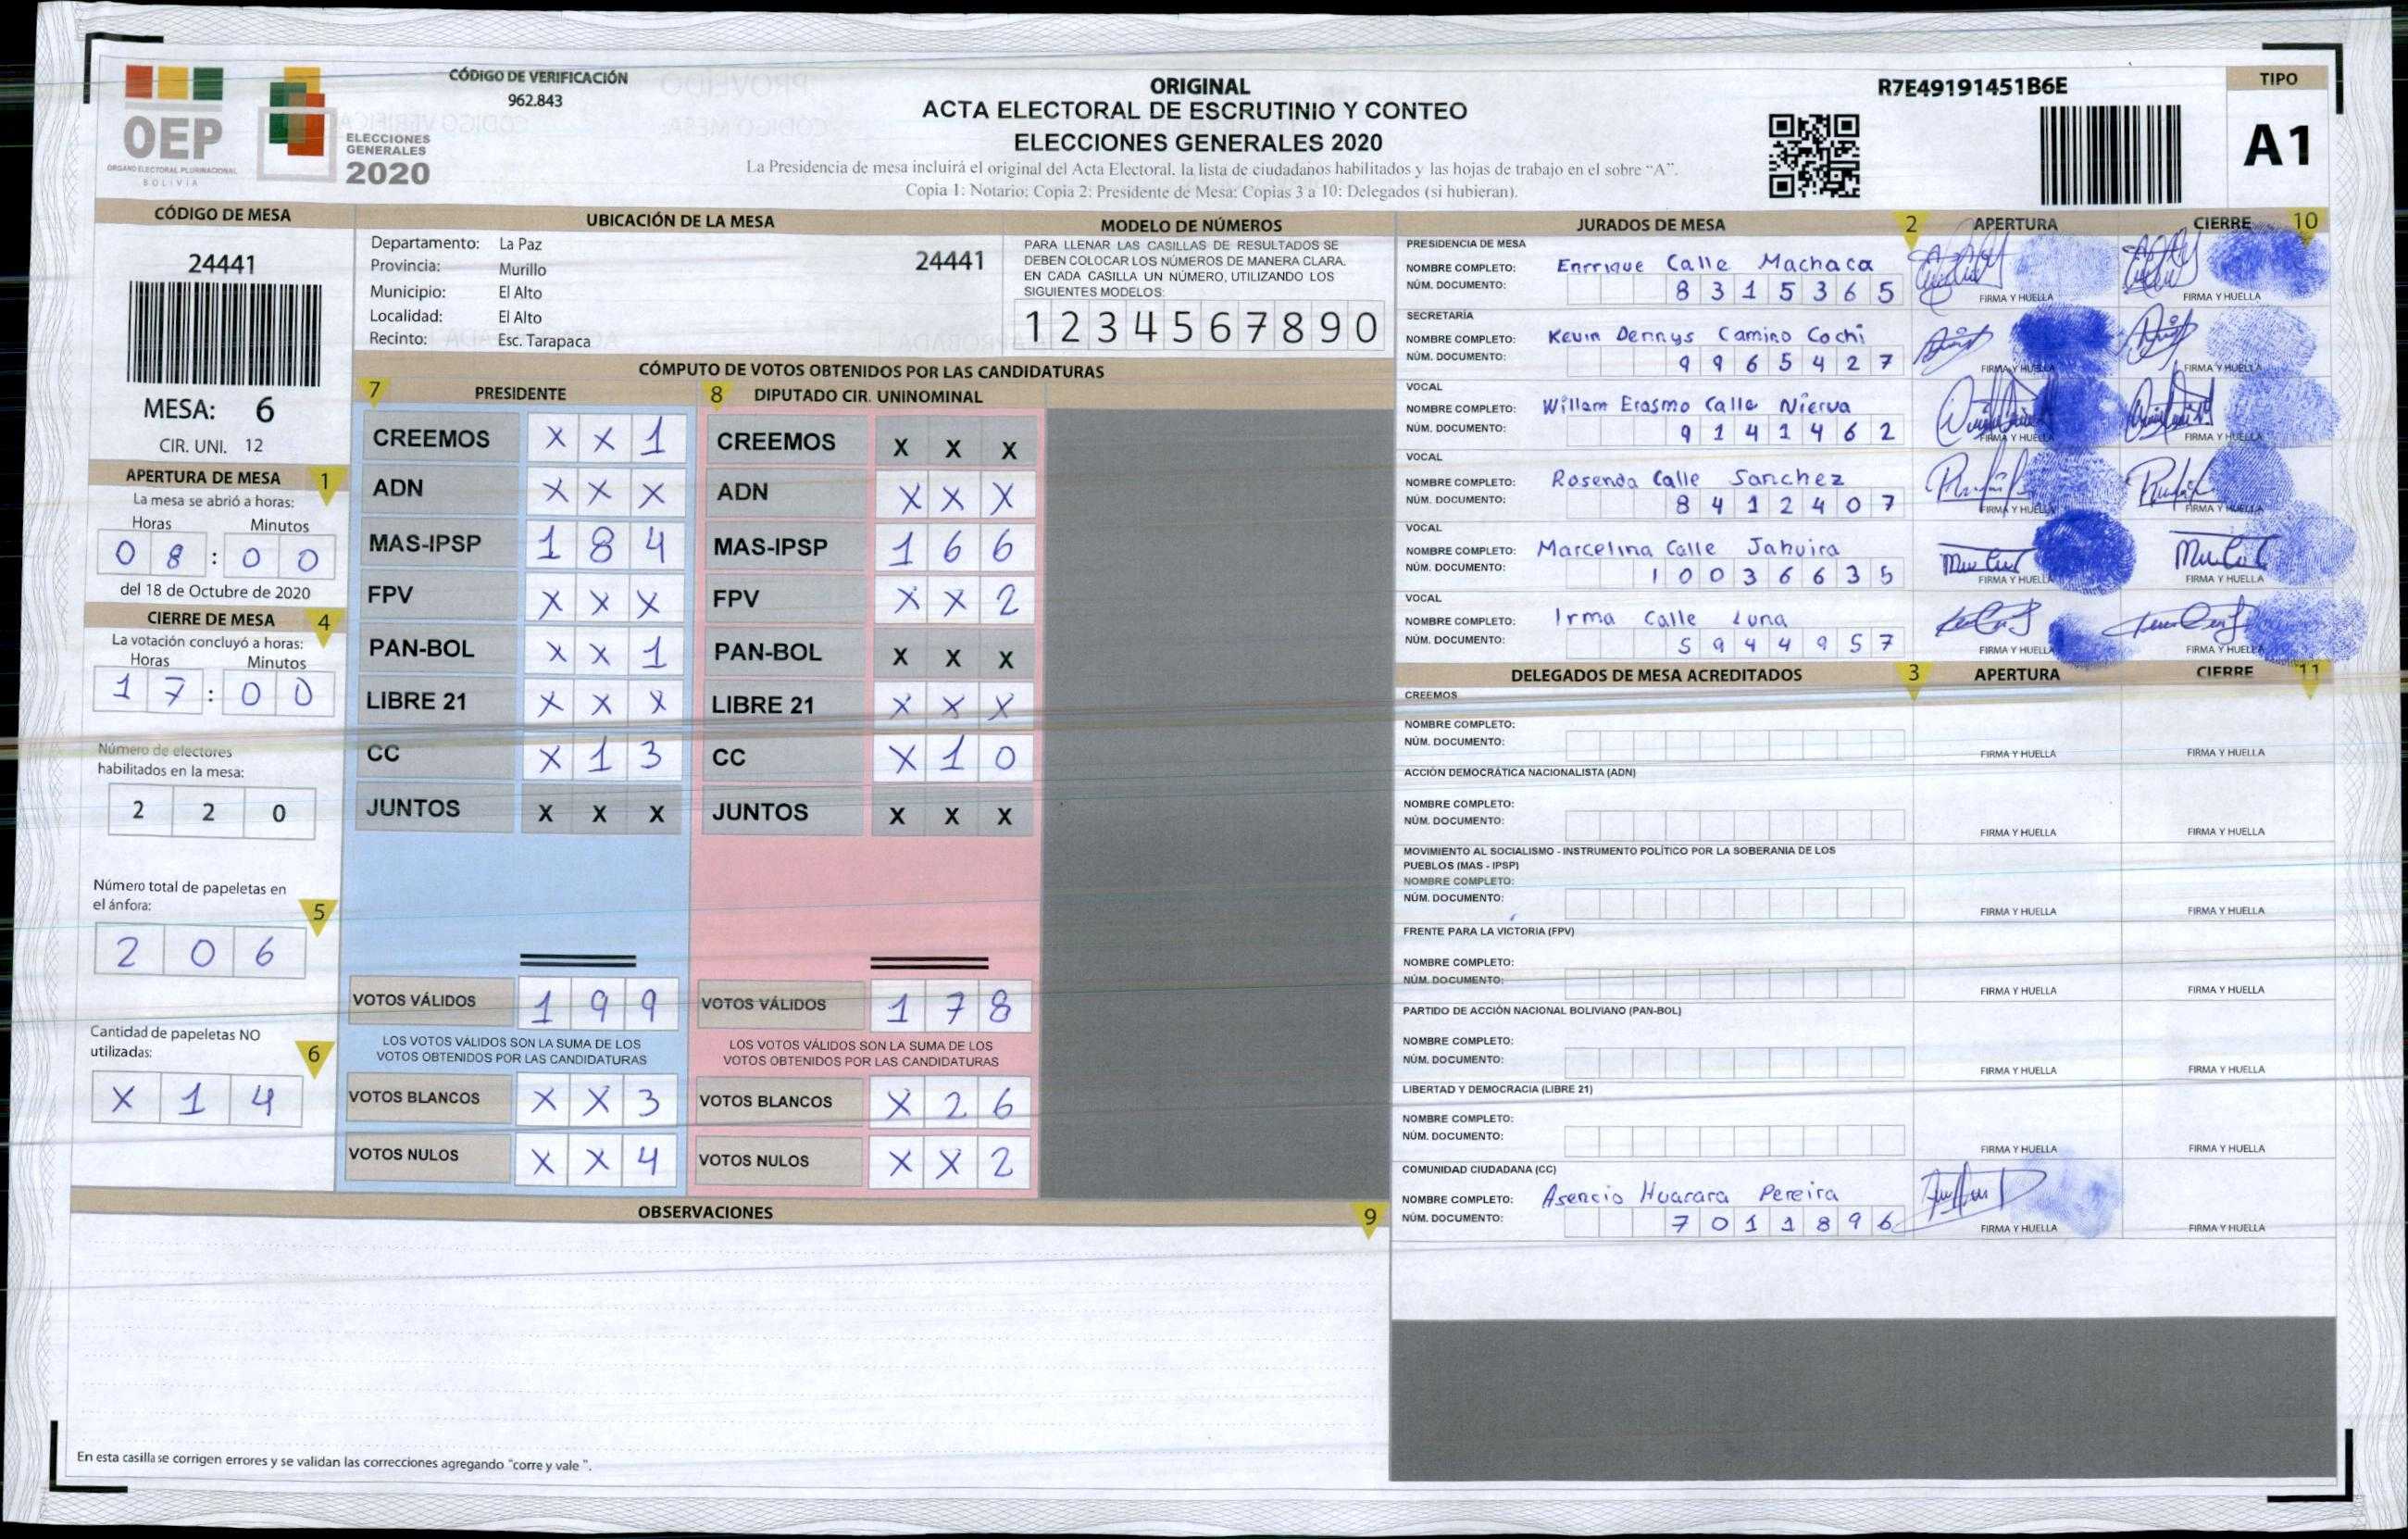 OEP
ÓRGANO ELECTORAL PLURINACIONAL
BOLIVIA
ELECCIONES
GENERALES
2020
CÓDIGO DE VERIFICACIÓN
962.843
ORIGINAL
ACTA ELECTORAL DE ESCRUTINIO Y CONTEO
ELECCIONES GENERALES 2020
La Presidencia de mesa incluirá el original del Acta Electoral, la lista de ciudadanos habilitados y las hojas de trabajo en el sobre "A".
Copia 1: Notario; Copia 2: Presidente de Mesa; Copias 3 a 10: Delegados (si hubieran).
R7E49191451B6E
TIPO
A1
CÓDIGO DE MESA
24441
MESA: 6
CIR. UNI. 12
APERTURA DE MESA 1
La mesa se abrió a horas:
Horas Minutos
0 8 : 0 0
del 18 de Octubre de 2020
CIERRE DE MESA 4
La votación concluyó a horas:
Horas Minutos
1 7 : 0 0
Número de electores
habilitados en la mesa:
2 2 0
Número total de papeletas en
el ánfora:
5
2 0 6
Cantidad de papeletas NO
utilizadas:
6
X 1 4
UBICACIÓN DE LA MESA
Departamento: La Paz
Provincia: Murillo
Municipio: El Alto
Localidad: El Alto
Recinto: Esc. Tarapaca
24441
MODELO DE NÚMEROS
PARA LLENAR LAS CASILLAS DE RESULTADOS SE
DEBEN COLOCAR LOS NÚMEROS DE MANERA CLARA.
EN CADA CASILLA UN NÚMERO, UTILIZANDO LOS
SIGUIENTES MODELOS:
1 2 3 4 5 6 7 8 9 0
CÓMPUTO DE VOTOS OBTENIDOS POR LAS CANDIDATURAS
7 PRESIDENTE 8 DIPUTADO CIR. UNINOMINAL
CREEMOS X X 1 CREEMOS X X X
ADN X X X ADN X X X
MAS-IPSP 1 8 4 MAS-IPSP 1 6 6
FPV X X X FPV X X 2
PAN-BOL X X 1 PAN-BOL X X X
LIBRE 21 X X X LIBRE 21 X X X
CC X 1 3 CC X 1 0
JUNTOS X X X JUNTOS X X X
VOTOS VÁLIDOS 1 9 9 VOTOS VÁLIDOS 1 7 8
LOS VOTOS VÁLIDOS SON LA SUMA DE LOS LOS VOTOS VÁLIDOS SON LA SUMA DE LOS
VOTOS OBTENIDOS POR LAS CANDIDATURAS VOTOS OBTENIDOS POR LAS CANDIDATURAS
VOTOS BLANCOS X X 3 VOTOS BLANCOS X 2 6
VOTOS NULOS X X 4 VOTOS NULOS X X 2
OBSERVACIONES 9
En esta casilla se corrigen errores y se validan las correcciones agregando "corre y vale ".
JURADOS DE MESA 2 APERTURA CIERRE 10
PRESIDENCIA DE MESA
NOMBRE COMPLETO: Enrrique Calle Machaca
NÚM. DOCUMENTO: 8 3 1 5 3 6 5
FIRMA Y HUELLA FIRMA Y HUELLA
SECRETARÍA
NOMBRE COMPLETO: Kevin Dennys Camino Cochi
NÚM. DOCUMENTO: 9 9 6 5 4 2 7
FIRMA Y HUELLA FIRMA Y HUELLA
VOCAL
NOMBRE COMPLETO: Willam Erasmo Calle Nierva
NÚM. DOCUMENTO: 9 1 4 1 4 6 2
FIRMA Y HUELLA FIRMA Y HUELLA
VOCAL
NOMBRE COMPLETO: Rosenda Calle Sanchez
NÚM. DOCUMENTO: 8 4 1 2 4 0 7
FIRMA Y HUELLA FIRMA Y HUELLA
VOCAL
NOMBRE COMPLETO: Marcelina Calle Jahuira
NÚM. DOCUMENTO: 1 0 0 3 6 6 3 5
FIRMA Y HUELLA FIRMA Y HUELLA
VOCAL
NOMBRE COMPLETO: Irma Calle Luna
NÚM. DOCUMENTO: 5 9 4 4 9 5 7
FIRMA Y HUELLA FIRMA Y HUELLA
DELEGADOS DE MESA ACREDITADOS 3 APERTURA CIERRE 11
CREEMOS
NOMBRE COMPLETO:
NÚM. DOCUMENTO:
FIRMA Y HUELLA FIRMA Y HUELLA
ACCIÓN DEMOCRÁTICA NACIONALISTA (ADN)
NOMBRE COMPLETO:
NÚM. DOCUMENTO:
FIRMA Y HUELLA FIRMA Y HUELLA
MOVIMIENTO AL SOCIALISMO - INSTRUMENTO POLÍTICO POR LA SOBERANIA DE LOS
PUEBLOS (MAS - IPSP)
NOMBRE COMPLETO:
NÚM. DOCUMENTO:
FIRMA Y HUELLA FIRMA Y HUELLA
FRENTE PARA LA VICTORIA (FPV)
NOMBRE COMPLETO:
NÚM. DOCUMENTO:
FIRMA Y HUELLA FIRMA Y HUELLA
PARTIDO DE ACCIÓN NACIONAL BOLIVIANO (PAN-BOL)
NOMBRE COMPLETO:
NÚM. DOCUMENTO:
FIRMA Y HUELLA FIRMA Y HUELLA
LIBERTAD Y DEMOCRACIA (LIBRE 21)
NOMBRE COMPLETO:
NÚM. DOCUMENTO:
FIRMA Y HUELLA FIRMA Y HUELLA
COMUNIDAD CIUDADANA (CC)
NOMBRE COMPLETO: Asencio Huarara Pereira
NÚM. DOCUMENTO: 7 0 1 1 8 9 6
FIRMA Y HUELLA FIRMA Y HUELLA